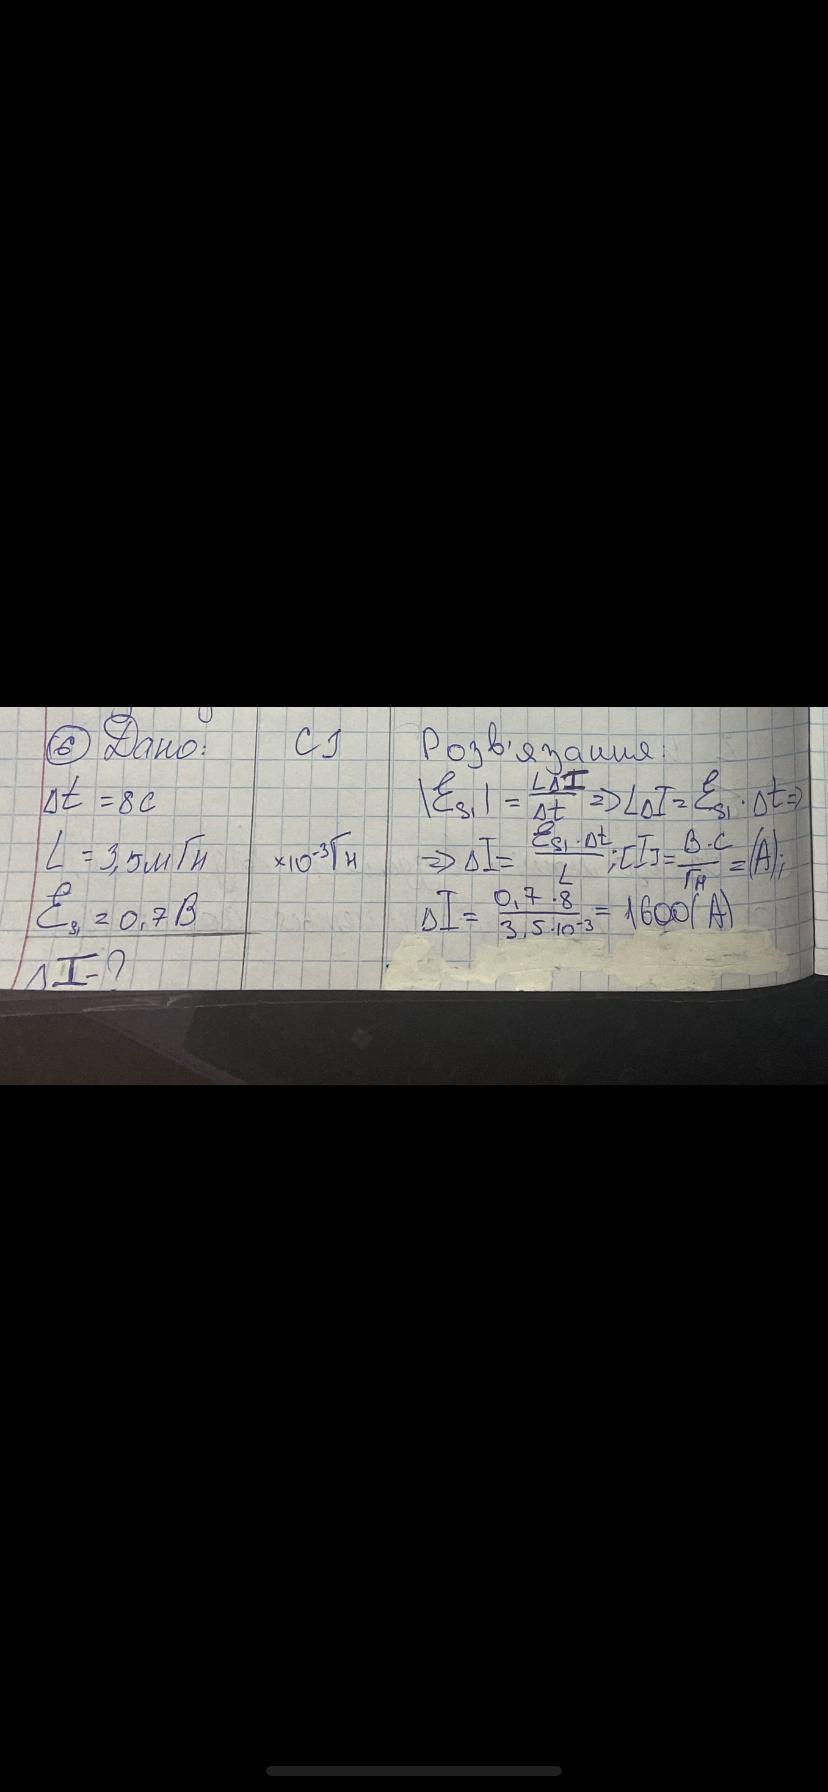 ⑥ Дано:
Δt = 8с
L = 3,5мГн
Ɛsᵢ = 0,7В
ΔI-?
СІ
×10⁻³Гн
Розв'язання:
|Ɛsᵢ| = LΔI/Δt => LΔI = Ɛsᵢ · Δt =>
=> ΔI = Ɛsᵢ·Δt/L ; [I] = В·с/Гн = (А);
ΔI = 0,7·8/3,5·10⁻³ = 1600(А)